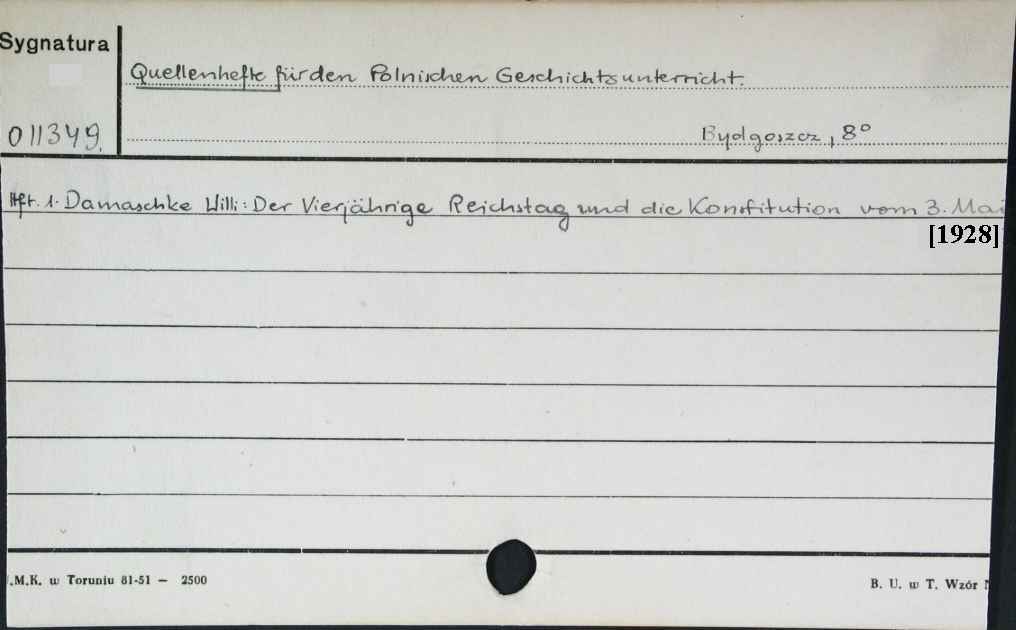 Sygnatura
Quellenhefte für den Polnischen Geschichtsunterricht.
011349.
Bydgoszcz, 8°
Hft. 1. Damaschke Willi: Der Vierjährige Reichstag und die Konstitution vom 3. Mai
[1928]
.M.K. w Toruniu 81-51 — 2500
B. U. w T. Wzór